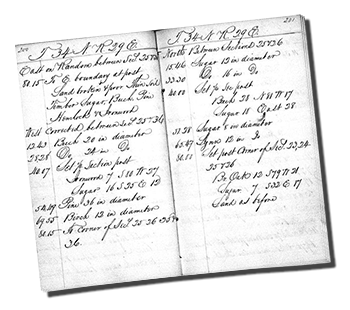 200
T 34 N R 29 E
East on Random between Sec 25 & 36
80.15 To E boundary at post
Land broken & poor Thin Soil
Timber Sugar, Birch Pine
Hemlock & Ironwood
West Corrected between Sec 25 & 36
12.43 Birch 20 in diameter
25.28 Do 24 in Do
40.07 Set ¼ Section post
Ironwood 7 S 80 W 27
Sugar 16 S 25 E 12
54.49 Pine 36 in diameter
69.55 Birch 12 in diameter
80.15 At corner of Sec 25 26 35 &
36.
201
T 34 N R 29 E
North Between Sections 25 & 26
15.46 Sugar 12 in diameter
33.30 Do 16 in Do
40.00 Set ¼ Sec post
Birch 28 N 11 W 17
Sugar 18 East 28
51.38 Sugar 8 in diameter
65.47 Lynn 12 in Do
80.00 Set post Corner of Sec 23, 24
25 & 26
B. Oak 12 S 79 W 21
Sugar 7 S 32 E 17
Land as before